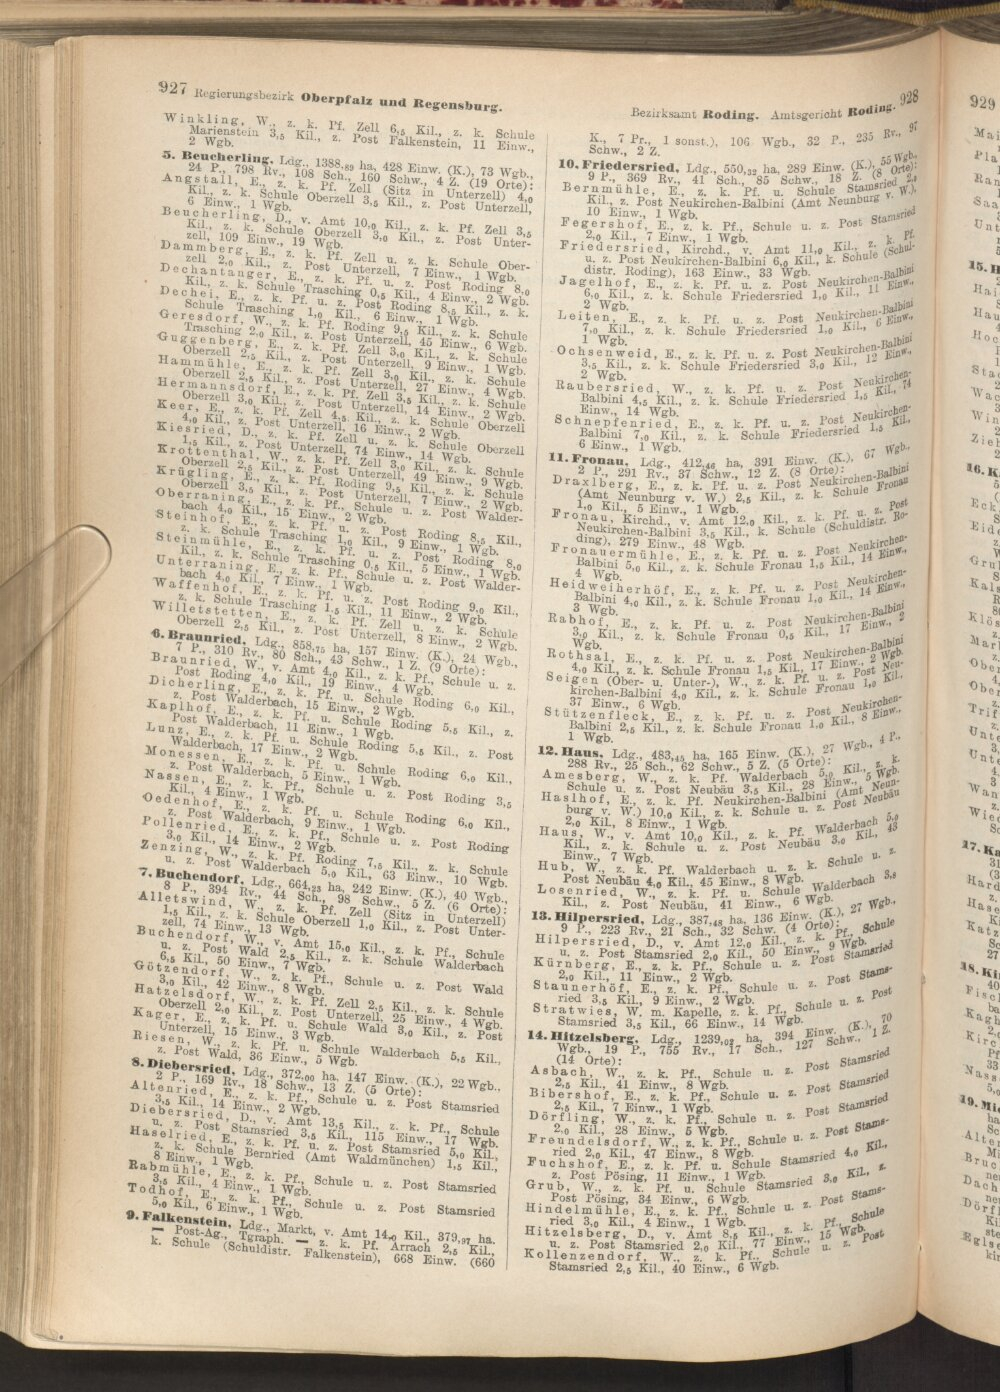 927 Regierungsbezirk Oberpfalz und Regensburg.
Winkling, W., z. k. Pf. Zell 6,5 Kil., z. k. Schule
Marienstein 3,5 Kil., z. Post Falkenstein, 11 Einw.,
2 Wgb.
5. Beucherling, Ldg., 1388,89 ha, 428 Einw. (K.), 73 Wgb.,
24 P., 798 Rv., 108 Sch., 160 Schw., 4 Z. (19 Orte):
Angstall, E., z. k. Pf. Zell (Sitz in Unterzell) 4,0
Kil., z. k. Schule Oberzell 3,5 Kil., z. Post Unterzell,
6 Einw., 1 Wgb.
Beucherling, D., v. Amt 10,0 Kil., z. k. Pf. Zell 3,5
Kil., z. k. Schule Oberzell 3,0 Kil., z. Post Unter-
zell, 109 Einw., 19 Wgb.
Dammberg, E., z. k. Pf. Zell u. z. k. Schule Ober-
zell 2,0 Kil., z. Post Unterzell, 7 Einw., 1 Wgb.
Dechantanger, E., z. k. Pf. u. z. Post Roding 8,0
Kil., z. k. Schule Trasching 0,5 Kil., 4 Einw., 2 Wgb.
Dechei, E., z. k. Pf. u. z. Post Roding 8,5 Kil., z. k.
Schule Trasching 1,0 Kil., 6 Einw., 1 Wgb.
Geresdorf, W., z. k. Pf. Roding 9,5 Kil., z. k. Schule
Trasching 2,0 Kil., z. Post Unterzell, 45 Einw., 6 Wgb.
Guggenberg, E., z. k. Pf. Zell 3,0 Kil., z. k. Schule
Oberzell 2,5 Kil., z. Post Unterzell, 9 Einw., 1 Wgb.
Hammühle, E., z. k. Pf. Zell 3,0 Kil., z. k. Schule
Oberzell 2,5 Kil., z. Post Unterzell, 27 Einw., 4 Wgb.
Hermannsdorf, E., z. k. Pf. Zell 3,5 Kil., z. k. Schule
Oberzell 3,0 Kil., z. Post Unterzell, 14 Einw., 2 Wgb.
Keer, E., z. k. Pf. Zell 4,5 Kil., z. k. Schule Oberzell
4,0 Kil., z. Post Unterzell, 16 Einw., 2 Wgb.
Kiesried, D., z. k. Pf. Zell u. z. k. Schule Oberzell
1,5 Kil., z. Post Unterzell, 74 Einw., 14 Wgb.
Krottenthal, W., z. k. Pf. Zell 3,0 Kil., z. k. Schule
Oberzell 2,5 Kil., z. Post Unterzell, 49 Einw., 9 Wgb.
Krügling, E., z. k. Pf. Roding 9,5 Kil., z. k. Schule
Oberzell 3,5 Kil., z. Post Unterzell, 7 Einw., 2 Wgb.
Oberraning, E., z. k. Pf., Schule u. z. Post Walder-
bach 4,0 Kil., 15 Einw., 2 Wgb.
Steinhof, E., z. k. Pf. u. z. Post Roding 8,5 Kil.,
z. k. Schule Trasching 1,0 Kil., 9 Einw., 1 Wgb.
Steinmühle, E., z. k. Pf. u. z. Post Roding 8,0
Kil., z. k. Schule Trasching 0,5 Kil., 5 Einw., 1 Wgb.
Unterraning, E., z. k. Pf., Schule u. z. Post Walder-
bach 4,0 Kil., 7 Einw., 1 Wgb.
Waffenhof, E., z. k. Pf. u. z. Post Roding 9,0 Kil.,
z. k. Schule Trasching 1,5 Kil., 11 Einw., 2 Wgb.
Willetstetten, E., z. k. Pf. Zell u. z. k. Schule
Oberzell 2,5 Kil., z. Post Unterzell, 8 Einw., 2 Wgb.
6. Braunried, Ldg., 858,75 ha, 157 Einw. (K.), 24 Wgb.,
7 P., 310 Rv., 80 Sch., 43 Schw., 1 Z. (9 Orte):
Braunried, W., v. Amt 4,0 Kil., z. k. Pf., Schule u. z.
Post Roding 4,0 Kil., 19 Einw., 4 Wgb.
Dicherling, E., z. k. Pf. u. Schule Roding 6,0 Kil.,
z. Post Walderbach, 15 Einw., 2 Wgb.
Kaplhof, E., z. k. Pf. u. Schule Roding 5,5 Kil., z.
Post Walderbach, 11 Einw., 1 Wgb.
Lunz, E., z. k. Pf. u. Schule Roding 5,5 Kil., z. Post
Walderbach, 17 Einw., 2 Wgb.
Monessen, E., z. k. Pf. u. Schule Roding 6,0 Kil.,
z. Post Walderbach, 5 Einw., 1 Wgb.
Nassen, E., z. k. Pf., Schule u. z. Post Roding 3,5
Kil., 4 Einw., 1 Wgb.
Oedenhof, E., z. k. Pf. u. Schule Roding 6,0 Kil.,
z. Post Walderbach, 9 Einw., 1 Wgb.
Pollenried, E., z. k. Pf., Schule u. z. Post Roding
3,0 Kil., 14 Einw., 2 Wgb.
Zenzing, W., z. k. Pf. Roding 7,5 Kil., z. k. Schule
u. z. Post Walderbach 5,0 Kil., 63 Einw., 10 Wgb.
7. Buchendorf, Ldg., 664,23 ha, 242 Einw. (K.), 40 Wgb.,
8 P., 394 Rv., 44 Sch., 98 Schw., 5 Z. (6 Orte):
Alletswind, W., z. k. Pf. Zell (Sitz in Unterzell)
1,5 Kil., z. k. Schule Oberzell 1,0 Kil., z. Post Unter-
zell, 74 Einw., 13 Wgb.
Buchendorf, W., v. Amt 15,0 Kil., z. k. Pf., Schule
u. z. Post Wald 2,5 Kil., z. k. Schule Walderbach
6,5 Kil., 50 Einw., 7 Wgb.
Götzendorf, W., z. k. Pf., Schule u. z. Post Wald
3,0 Kil., 42 Einw., 8 Wgb.
Hatzelsdorf, W., z. k. Pf. Zell 2,5 Kil., z. k. Schule
Oberzell 2,0 Kil., z. Post Unterzell, 25 Einw., 4 Wgb.
Kager, E., z. k. Pf. u. Schule Wald 3,0 Kil., z. Post
Unterzell, 15 Einw., 3 Wgb.
Riesen, W., z. k. Pf. u. Schule Walderbach 5,5 Kil.,
z. Post Wald, 36 Einw., 5 Wgb.
8. Diebersried, Ldg., 372,00 ha, 147 Einw. (K.), 22 Wgb.,
2 P., 169 Rv., 18 Schw., 13 Z. (5 Orte):
Altenried, E., z. k. Pf., Schule u. z. Post Stamsried
3,5 Kil., 14 Einw., 2 Wgb.
Diebersried, D., v. Amt 13,5 Kil., z. k. Pf., Schule
u. z. Post Stamsried 3,5 Kil., 115 Einw., 17 Wgb.
Haselried, E., z. k. Pf. u. z. Post Stamsried 5,0 Kil.,
z. k. Schule Bernried (Amt Waldmünchen) 1,5 Kil.,
8 Einw., 1 Wgb.
Rabmühle, E., z. k. Pf., Schule u. z. Post Stamsried
3,5 Kil., 4 Einw., 1 Wgb.
Todhof, E., z. k. Pf., Schule u. z. Post Stamsried
5,0 Kil., 6 Einw., 1 Wgb.
9. Falkenstein, Ldg., Markt, v. Amt 14,0 Kil., 379,97 ha.
— Post-Ag., Tgraph. — z. k. Pf. Arrach 2,5 Kil.,
k. Schule (Schuldistr. Falkenstein), 668 Einw. (660
Bezirksamt Roding. Amtsgericht Roding. 928
K., 7 Pr., 1 sonst.), 106 Wgb., 32 P., 235 Rv., 97
Schw., 2 Z.
10. Friedersried, Ldg., 550,32 ha, 289 Einw. (K.), 55 Wgb.,
9 P., 369 Rv., 41 Sch., 85 Schw., 18 Z. (8 Orte):
Bernmühle, E., z. k. Pf. u. Schule Stamsried 2,0
Kil., z. Post Neukirchen-Balbini (Amt Neunburg v. W.),
10 Einw., 1 Wgb.
Fegershof, E., z. k. Pf., Schule u. z. Post Stamsried
2,0 Kil., 7 Einw., 1 Wgb.
Friedersried, Kirchd., v. Amt 11,0 Kil., z. k. Pf.
u. z. Post Neukirchen-Balbini 6,0 Kil., k. Schule (Schul-
distr. Roding), 163 Einw., 33 Wgb.
Jagelhof, E., z. k. Pf. u. z. Post Neukirchen-Balbini
6,0 Kil., z. k. Schule Friedersried 1,0 Kil., 11 Einw.,
2 Wgb.
Leiten, E., z. k. Pf. u. z. Post Neukirchen-Balbini
7,0 Kil., z. k. Schule Friedersried 1,0 Kil., 6 Einw.,
1 Wgb.
Ochsenweid, E., z. k. Pf. u. z. Post Neukirchen-Balbini
3,5 Kil., z. k. Schule Friedersried 3,0 Kil., 12 Einw.,
2 Wgb.
Raubersried, W., z. k. Pf. u. z. Post Neukirchen-
Balbini 4,5 Kil., z. k. Schule Friedersried 1,5 Kil., 74
Einw., 14 Wgb.
Schnepfenried, E., z. k. Pf. u. z. Post Neukirchen-
Balbini 7,0 Kil., z. k. Schule Friedersried 1,5 Kil.,
6 Einw., 1 Wgb.
11. Fronau, Ldg., 412,46 ha, 391 Einw. (K.), 67 Wgb.,
2 P., 291 Rv., 37 Schw., 12 Z. (8 Orte):
Draxlberg, E., z. k. Pf. u. z. Post Neukirchen-Balbini
(Amt Neunburg v. W.) 2,5 Kil., z. k. Schule Fronau
1,0 Kil., 5 Einw., 1 Wgb.
Fronau, Kirchd., v. Amt 12,0 Kil., z. k. Pf. u. z. Post
Neukirchen-Balbini 3,5 Kil., k. Schule (Schuldistr. Ro-
ding), 279 Einw., 48 Wgb.
Fronauermühle, E., z. k. Pf. u. z. Post Neukirchen-
Balbini 5,0 Kil., z. k. Schule Fronau 1,5 Kil., 14 Einw.,
4 Wgb.
Heidweiherhöf, E., z. k. Pf. u. z. Post Neukirchen-
Balbini 4,0 Kil., z. k. Schule Fronau 1,0 Kil., 14 Einw.,
3 Wgb.
Rabhof, E., z. k. Pf. u. z. Post Neukirchen-Balbini
3,0 Kil., z. k. Schule Fronau 0,5 Kil., 17 Einw., 2
Wgb.
Rothsal, E., z. k. Pf. u. z. Post Neukirchen-Balbini
4,0 Kil., z. k. Schule Fronau 1,5 Kil., 17 Einw., 2 Wgb.
Seigen (Ober- u. Unter-), W., z. k. Pf. u. z. Post Neu-
kirchen-Balbini 4,0 Kil., z. k. Schule Fronau 1,0 Kil.,
37 Einw., 6 Wgb.
Stützenfleck, E., z. k. Pf. u. z. Post Neukirchen-
Balbini 2,5 Kil., z. k. Schule Fronau 1,0 Kil., 8 Einw.,
1 Wgb.
12. Haus, Ldg., 483,45 ha, 165 Einw. (K.), 27 Wgb., 4 P.,
288 Rv., 25 Sch., 62 Schw., 5 Z. (5 Orte):
Amesberg, W., z. k. Pf. Walderbach 5,0 Kil., z. k.
Schule u. z. Post Neubäu 3,5 Kil., 28 Einw., 5 Wgb.
Haslhof, E., z. k. Pf. Neukirchen-Balbini (Amt Neun-
burg v. W.) 10,0 Kil., z. k. Schule u. z. Post Neubäu
2,0 Kil., 8 Einw., 1 Wgb.
Haus, W., v. Amt 10,0 Kil., z. k. Pf. Walderbach 5,0
Kil., z. k. Schule u. z. Post Neubäu 3,0 Kil., 43
Einw., 7 Wgb.
Hub, W., z. k. Pf. Walderbach u. z. k. Schule u. z.
Post Neubäu 4,0 Kil., 45 Einw., 8 Wgb.
Losenried, W., z. k. Pf. u. Schule Walderbach 3,8
Kil., z. Post Neubäu, 41 Einw., 6 Wgb.
13. Hilpersried, Ldg., 387,48 ha, 136 Einw. (K.), 27 Wgb.,
9 P., 223 Rv., 21 Sch., 32 Schw. (4 Orte):
Hilpersried, D., v. Amt 12,0 Kil., z. k. Pf., Schule
u. z. Post Stamsried 2,0 Kil., 50 Einw., 9 Wgb.
Kürnberg, E., z. k. Pf., Schule u. z. Post Stamsried
2,0 Kil., 11 Einw., 2 Wgb.
Staunerhöf, E., z. k. Pf., Schule u. z. Post Stams-
ried 3,5 Kil., 9 Einw., 2 Wgb.
Stratwies, W. m. Kapelle, z. k. Pf., Schule u. z. Post
Stamsried 3,5 Kil., 66 Einw., 14 Wgb.
14. Hitzelsberg, Ldg., 1239,02 ha, 394 Einw. (K.), 70
Wgb., 19 P., 755 Rv., 17 Sch., 127 Schw., 1 Z.
(14 Orte):
Asbach, W., z. k. Pf., Schule u. z. Post Stamsried
2,5 Kil., 41 Einw., 8 Wgb.
Bibershof, E., z. k. Pf., Schule u. z. Post Stamsried
2,5 Kil., 7 Einw., 1 Wgb.
Dörfling, W., z. k. Pf., Schule u. z. Post Stamsried
2,0 Kil., 28 Einw., 5 Wgb.
Freundelsdorf, W., z. k. Pf., Schule u. z. Post Stams-
ried 2,0 Kil., 47 Einw., 8 Wgb.
Fuchshof, E., z. k. Pf. u. Schule Stamsried 4,0 Kil.,
z. Post Pösing, 11 Einw., 1 Wgb.
Grub, W., z. k. Pf. u. Schule Stamsried 3,0 Kil., z.
Post Pösing, 34 Einw., 6 Wgb.
Hindelmühle, E., z. k. Pf., Schule u. z. Post Stams-
ried 3,0 Kil., 4 Einw., 1 Wgb.
Hitzelsberg, D., v. Amt 8,5 Kil., z. k. Pf., Schule
u. z. Post Stamsried 2,0 Kil., 77 Einw., 15 Wgb.
Kollenzendorf, W., z. k. Pf., Schule u. z. Post
Stamsried 2,5 Kil., 40 Einw., 6 Wgb.
929